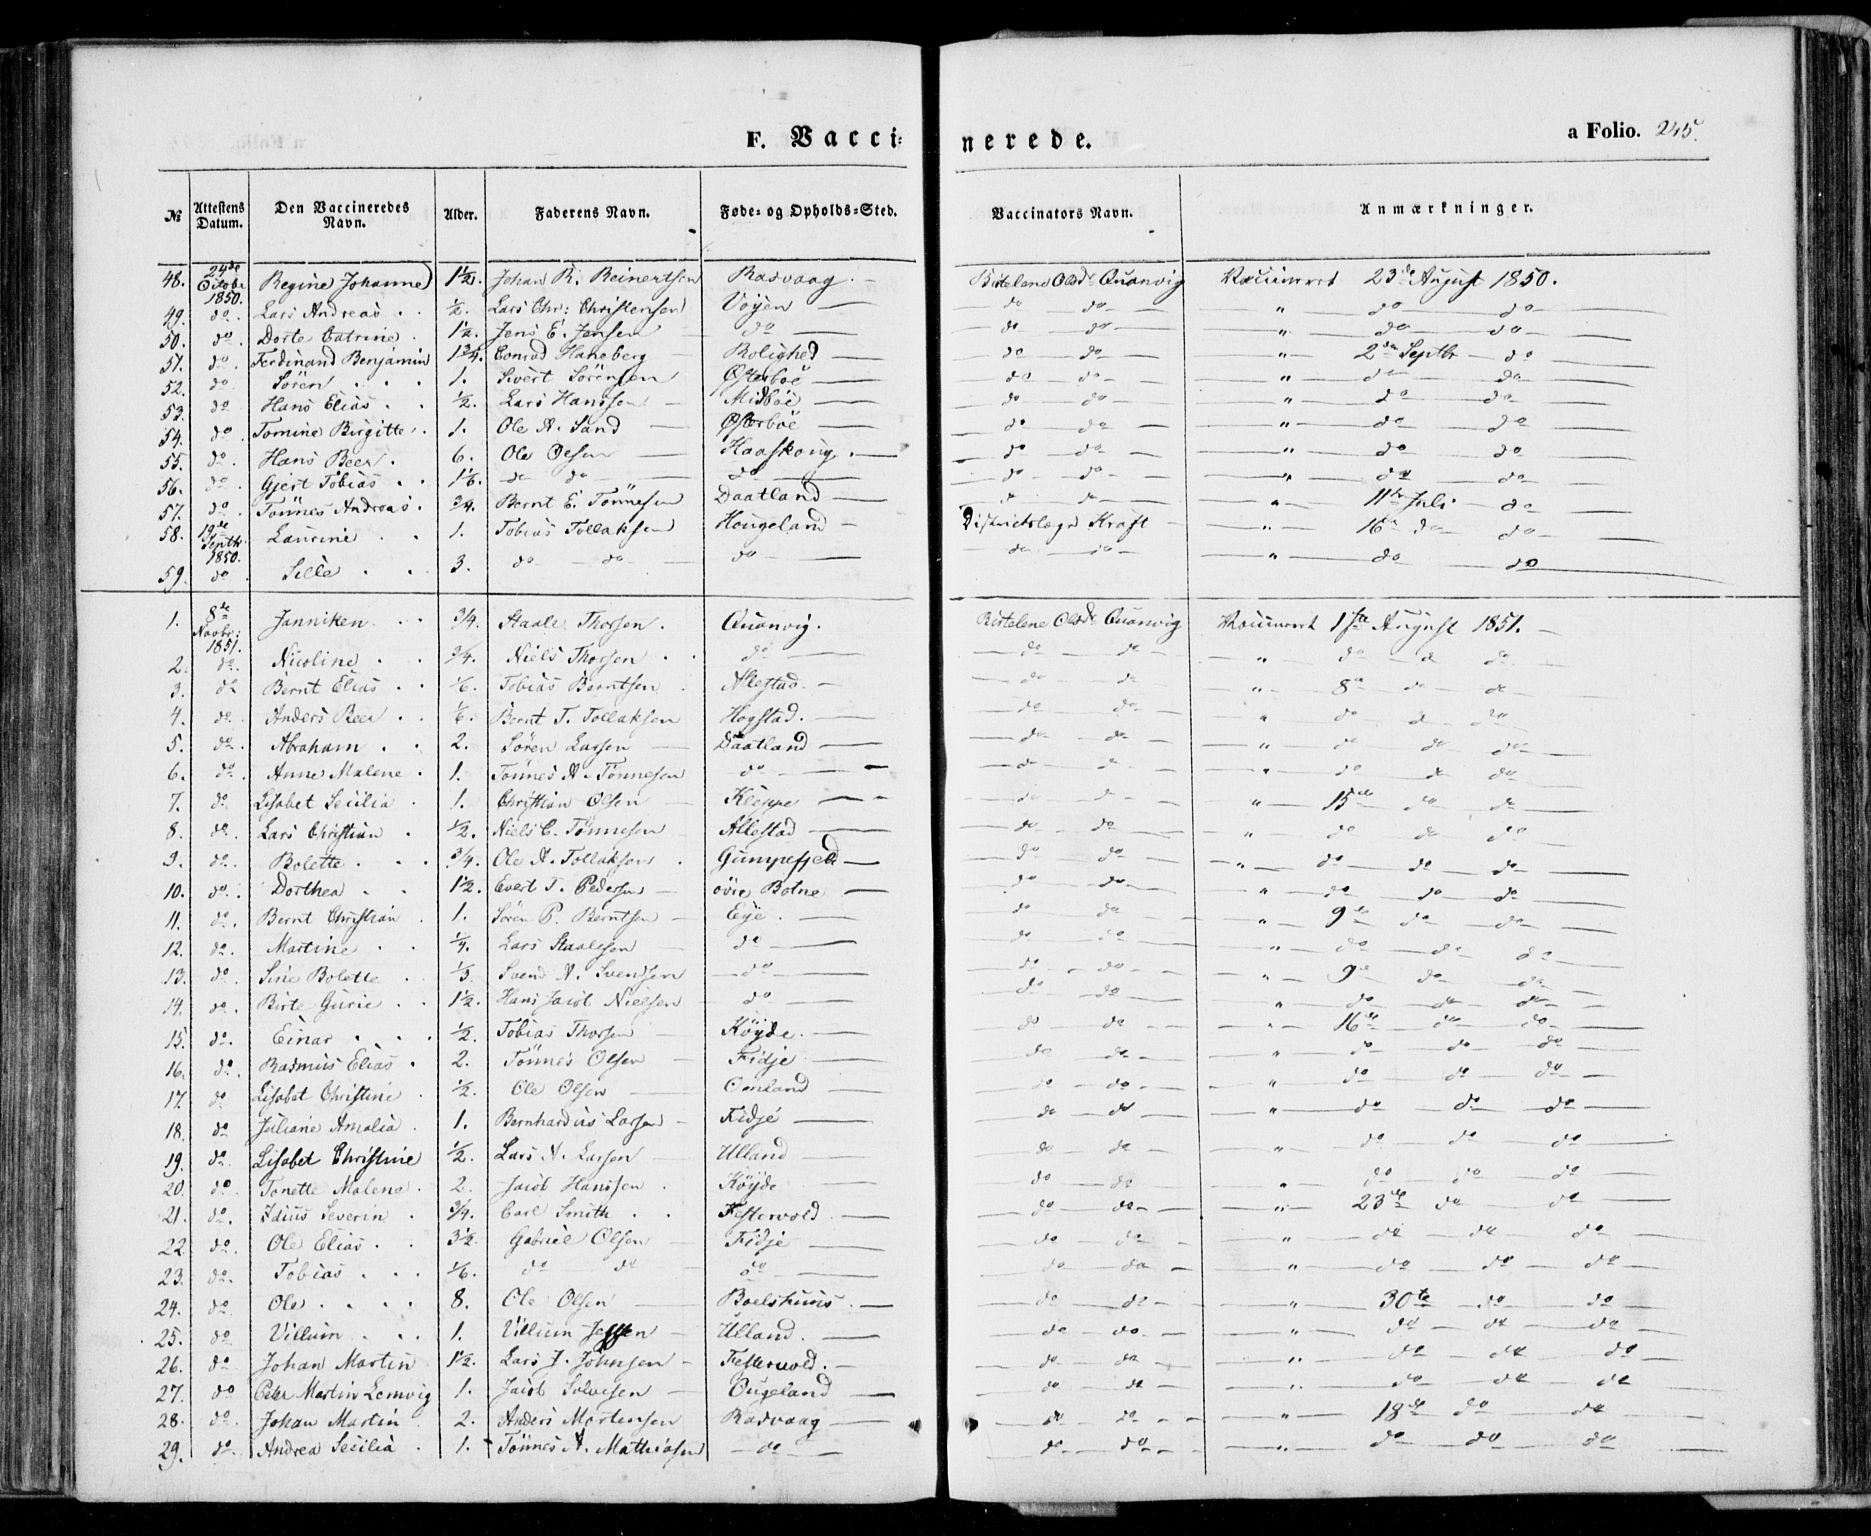 F. Vacci-
nerede.
a Folio. 245.
№ | Attestens Datum. | Den Vaccineredes Navn. | Alder. | Faderens Navn. | Føde- og Opholds-Sted. | Vaccinators Navn. | Anmærkninger.
48. | 24de Octobr 1850. | Regine Johanne | 1½. | Johan R. Reinertsen | Rasvaag. | Olsdr Quanvig | Vaccineret 23de August 1850.
49. | do. | Lars Andreas | ½. | Lars Chr: Christensen | Vöyen | do do | " do do
50. | do. | Dorte Catrine | 1½. | Jens E. Jensen | do | do do | " do do
51. | do. | Ferdinand Benjamin | 1¾. | Conrad Haneberg | Rolighed | do do | " 2den Septbr do
52. | do | Sören | 1. | Sivert Sörensen | Österböe | do do | " do do
53. | do | Hans Elias | ½. | Lars Hanssen | Midböe | do do | " do do
54. | do | Tomine Birgitte | 1. | Ole A. Sand | Österböe | do do | " do do
55. | do. | Hans Beer | 6. | Ole Olsen | | do do | " do do
56. | do. | Gjert Tobias | 1/6. | do do | do | do do | " do do
57. | do. | Tönnes Andreas | ¾. | Bernt E. Tönnesen | Daatland | do do | " 11te Juli do
58. | 19de Septbr 1850. | Laurine | 1. | Tobias Tollaksen | Hougeland | Districtslæge Kraft | " 16de do do
59. | do | Sille | 3. | do do | do | do do | " do do
1. | 8de Novbr: 1851. | Janniken | ¾. | Staale Thorsen. | Quanvig. | Olsdr Quanvig | Vaccineret 1ste August 1851.
2. | do. | Nicoline | ¾. | Niels Thorsen | do | do do | " do do do
3. | do | Bernt Elias | 1/6. | Tobias Berntsen | Alestad. | do do | " 8de do do
4. | do. | Anders Beer | 1/6. | Bernt T. Tollaksen | Hogstad. | do do | " do do do
5. | do. | Abraham | 2. | Sören Larsen | Daatland | do do | " do do do
6. | do. | Anne Malene | 1. | Tönnes A. Tönnesen | do | do do | " do do do
7. | do. | Lisabet Secilia | 1. | Christian Olsen | Kleppe | do do | " 15de do do
8. | do. | Lars Christian | ½. | Niels C. Tönnesen | Allestad | do do | " do do do
9. | do. | Bolette | ¾. | Ole A. Tollaksen | Gumpefjed | do do | " do do do
10. | do. | Dorthea | 1½. | Evert T. Pedersen | övre Botne | do do | " do do do
11. | do. | Bernt Christian | 1. | Sören P. Berntsen | Eye. | do do | " 9de do do
12. | do. | Martine | ¼. | Lars Staalesen | do | do do | " do do do
13. | do. | Sine Bolette | ⅓. | Svend A. Svendsen | do | do do | " 9de do do
14. | do. | Birte Gurie | 1½. | Hans Jacob Nielsen | do | do do | " do do do
15. | do. | Einar | ½. | Tobias Thorsen | Köyde. | do do | " 16de do do
16. | do. | Rasmus Elias | 2. | Tönnes Olsen | Fidje | do do | " do do do
17. | do | Lisabet Christine | ½. | Ole Olsen | Omland | do do | " do do do
18. | do | Juliane Amalia | 1. | Bernhardus Larsen | Fidje | do do | " do do do
19. | do. | Lisabet Christine | ½. | Lars A. Larsen | Ulland | do do | " do do do
20. | do | Tonette Malene | 2. | Jacob Hanssen | Köyde | do do | do do do
21. | do. | Idius Severin | ¾. | Carl Smith | Festervold | do do | " 23de do do
22. | do. | Ole Elias | 3½. | Gabriel Olsen | Fidje | do do | " do do do
23. | do. | Tobias | 1/6. | do do | do | do do | " do do do
24. | do. | Ole | 8. | Ole Olsen | Boelshuus. | do do | " 30te do do
25. | do | Villum | 1. | Villum Jessen | Ulland. | do do | " do do do
26. | do. | Johan Martin | 1½. | Lars J. Johnsen | Festervold. | do do | " do do do
27. | do | Peter Martin Lemvig | 1. | Jacob Salvesen | Ougeland | do do | " do do do
28. | do. | Johan Martin | 2. | Anders Mortensen | Rasvaag | do do | " 18de do do
29. | do. | Andrea Secilia | 1. | Tönnes A. Mathiasen | do | do do | " do do do